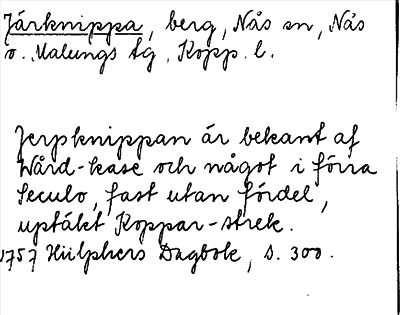 Järknippa, berg, Nås sn, Nås
o. Malungs tg, Kopp. l.
Jerpknippan är bekant af
Wård-kase och något i förra
Seculo, fast utan fördel,
uptäkt Koppar-strek.
1757 Hülphers Dagbok, s. 300.